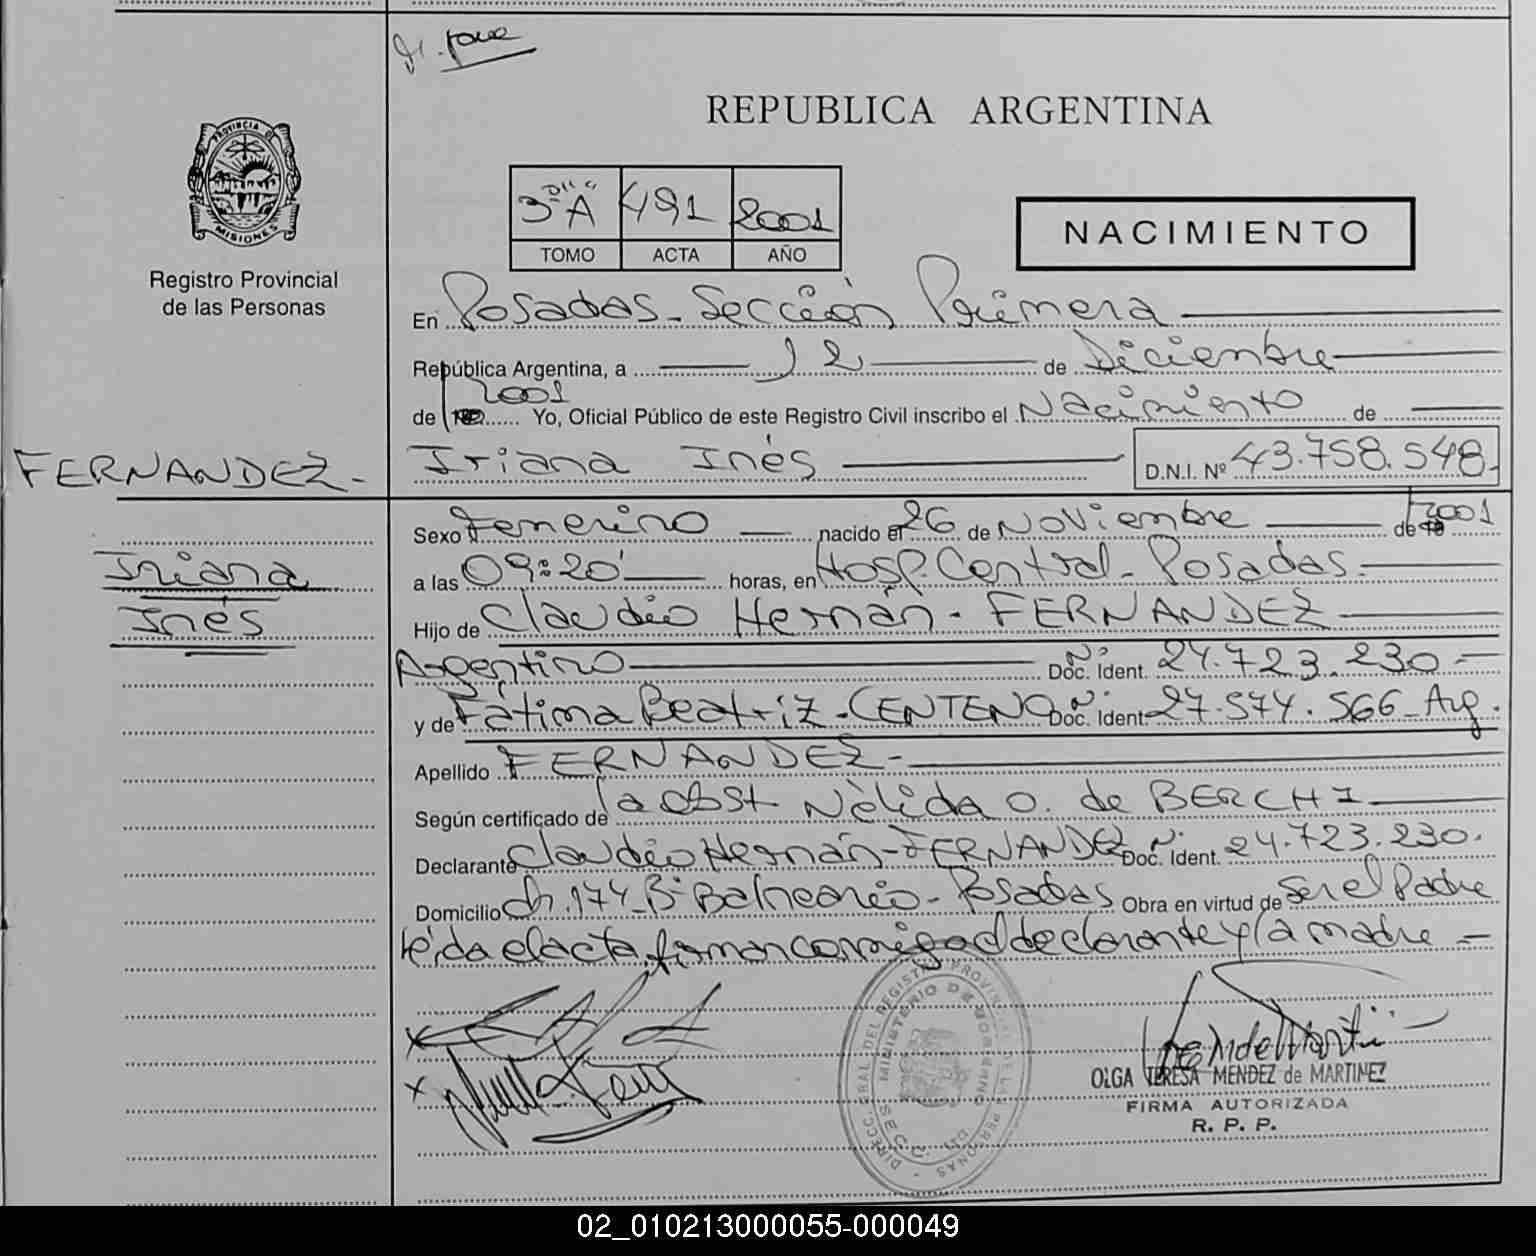 REPUBLICA ARGENTINA
PROVINCIA D
MISIONES
Registro Provincial
de las Personas
3º A 491 2001
TOMO ACTA AÑO
NACIMIENTO
En Posadas - Sección Primera
República Argentina, a 12 de Diciembre
de 2001 Yo, Oficial Público de este Registro Civil inscribo el Nacimiento de
FERNANDEZ -
Iriana Inés D.N.I. Nº 43.758.548.
Iriana
Inés
Sexo Femenino nacido el 26 de Noviembre de 2001
a las 09:20' horas, en Hosp. Central - Posadas.
Hijo de Claudio Hernán - FERNANDEZ
Argentino Nº Doc. Ident. 24.723.230.-
y de Fátima Beatriz - CENTENO Nº Doc. Ident. 27.574.566 - Arg.
Apellido FERNANDEZ -
Según certificado de la obst. Nèlida O. de BERCHI
Declarante Claudio Hernán - FERNANDEZ Nº Doc. Ident. 24.723.230.
Domicilio Ch. 174 - Bº Balneario - Posadas Obra en virtud de Ser el Padre
leída el acta, firman conmigo el declarante y la madre -
DIRECC. GRAL DEL REGISTRO PROVINCIAL DE LAS PERSONAS
MINISTERIO DE GOBIERNO
OLGA TERESA MENDEZ de MARTINEZ
FIRMA AUTORIZADA
R. P. P.
02_010213000055-000049